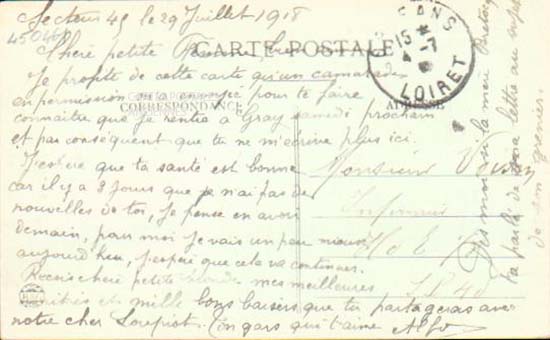 Secteur 45 le 29 Juillet 1918
Chère petite Femme
CARTE POSTALE
Je profite de cette carte qu'un camarade
en permission m'a envoyée pour te faire
CORRESPONDANCE
ADRESSE
connaître que je rentre à Gray samedi prochain
et par conséquent que tu ne m'écrive plus ici.
J'espère que ta santé est bonne
car il y a 8 jours que je n'ai pas de
nouvelles de toi, Je pense en avoir
demain, pour moi je vais un peu mieux
aujourd'hui, j'espère que cela va continuer.
Reçois chère petite mes meilleures
amitiés et mille bons baisers que tu partageras avec
notre cher Ton gars qui t'aime
Monsieur
Dis moi si la mère
t'a parlé de ma lettre au sujet
de son grenier.
15
LOIRET